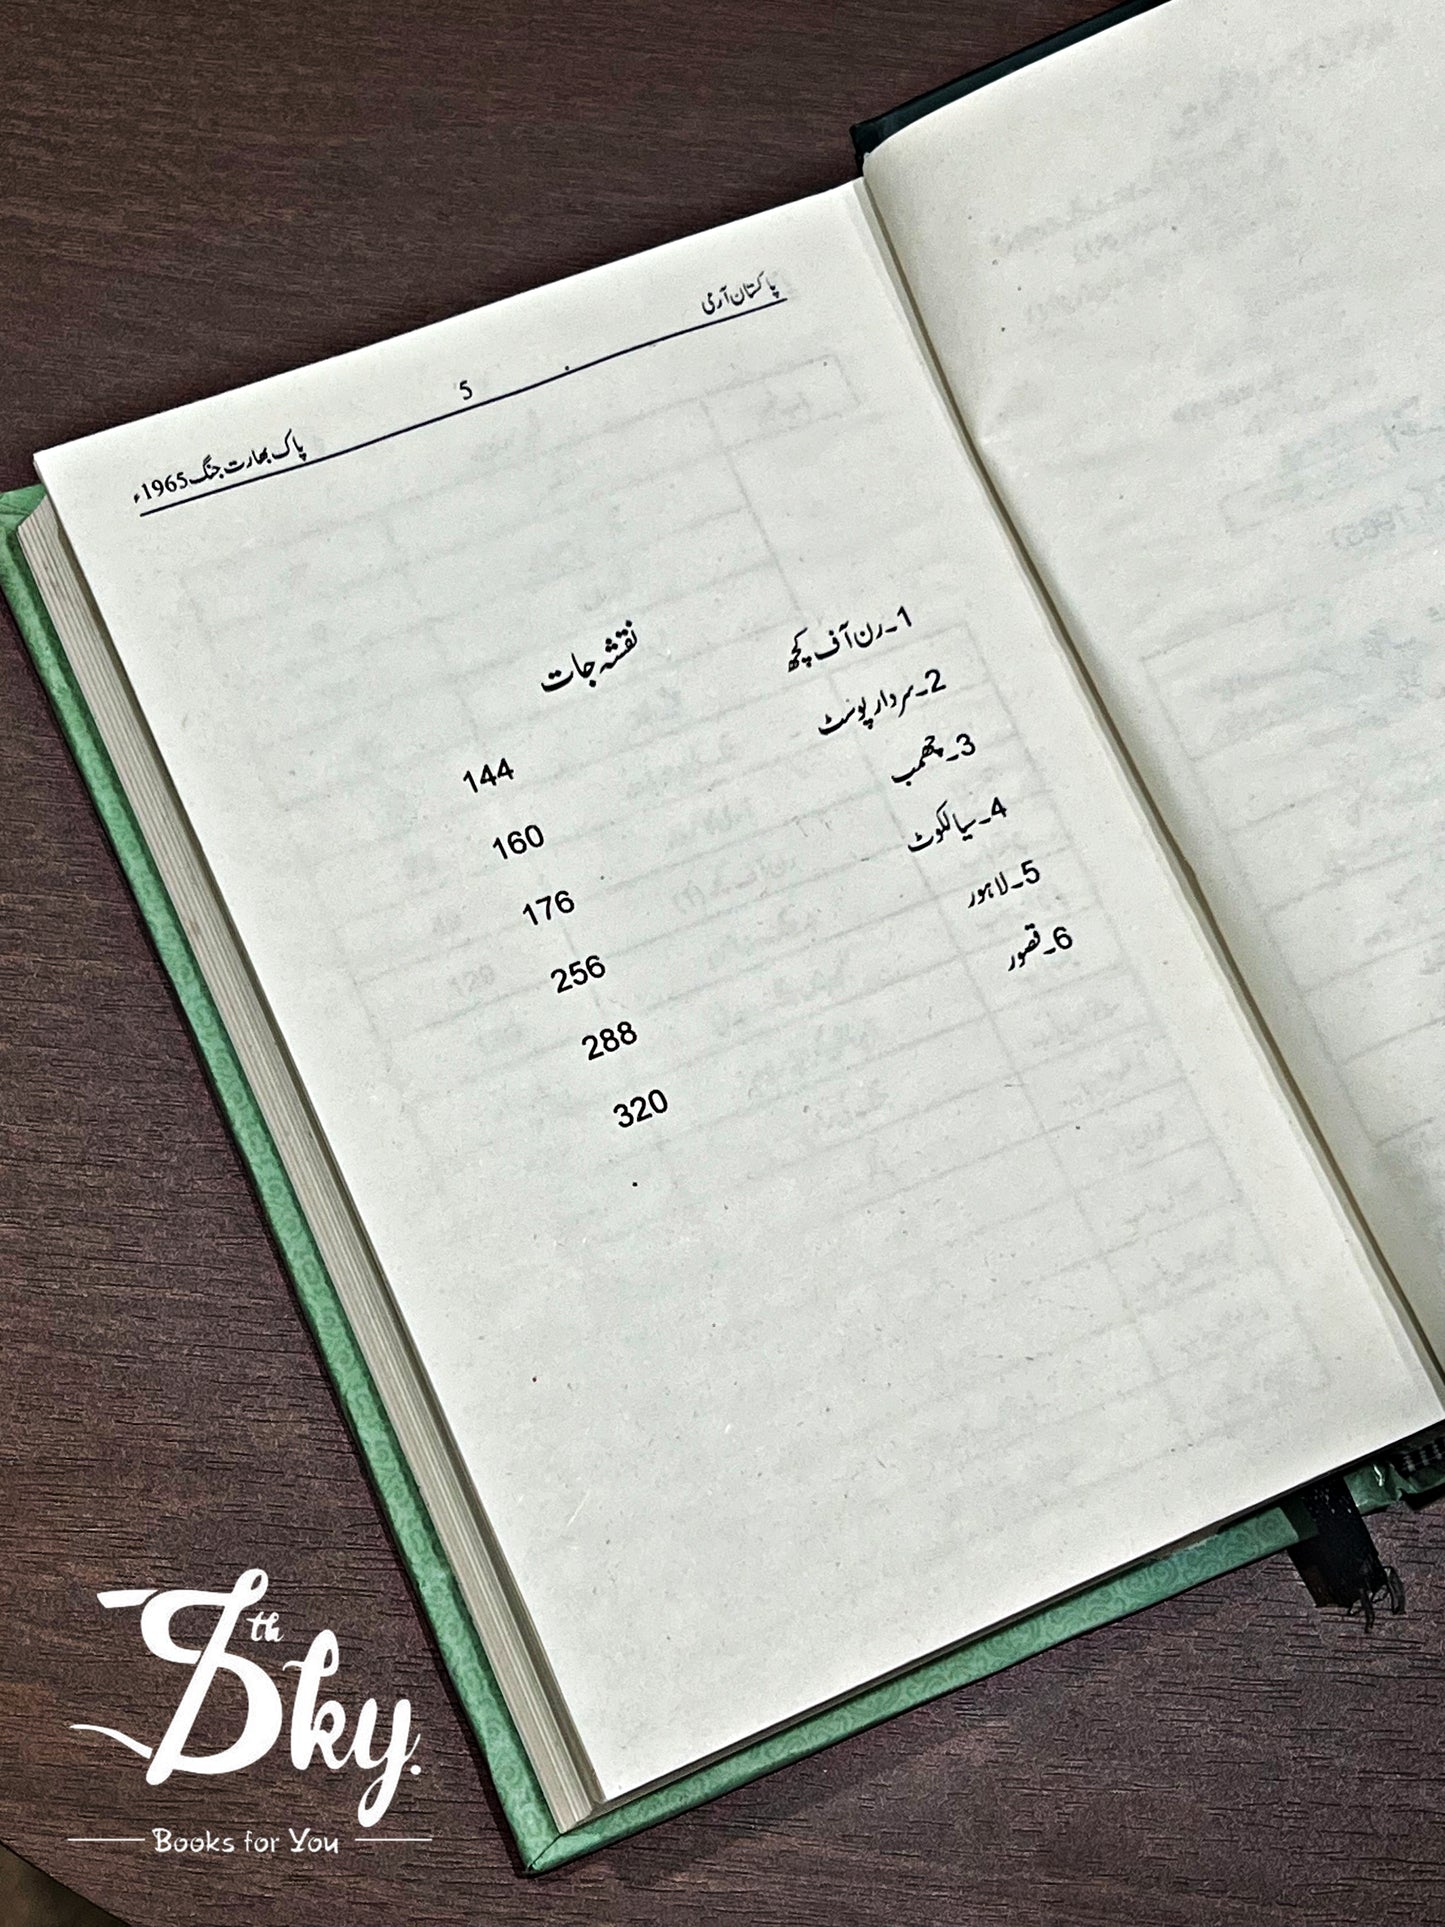 پاکستان آرمی 5 پاک بھارت جنگ 1965ء
نقشہ جات
1۔رن آف کچھ 144
2۔سردار پوسٹ 160
3۔چھمب 176
4۔سیالکوٹ 256
5۔لاہور 288
6۔قصور 320
7th Sky.
Books for You